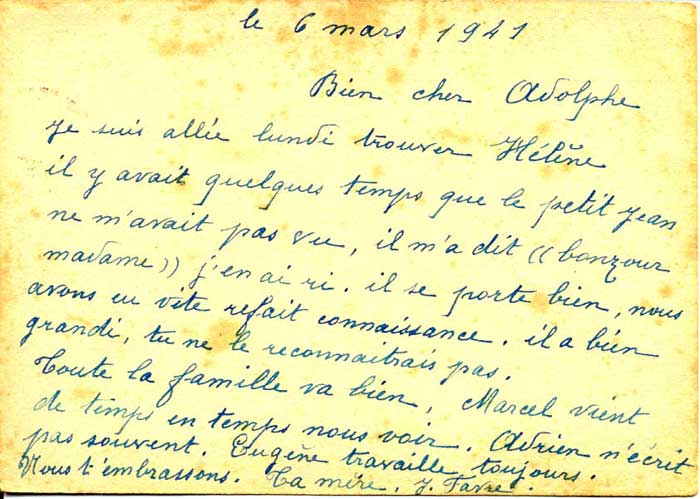 le 6 mars 1941
Bien cher Adolphe
je suis allée lundi trouver Hélène
il y avait quelques temps que le petit jean
ne m'avait pas vu, il m'a dit ((bonjour
madame)) j'en ai ri. il se porte bien, nous
avons eu vite refait connaissance. il a bien
grandi, tu ne le reconnaitrais pas.
Toute la famille va bien, Marcel vient
de temps en temps nous voir. Adrien n'écrit
pas souvent. Eugène travaille toujours.
Nous t'embrassons. Ta mère. J. Favre.